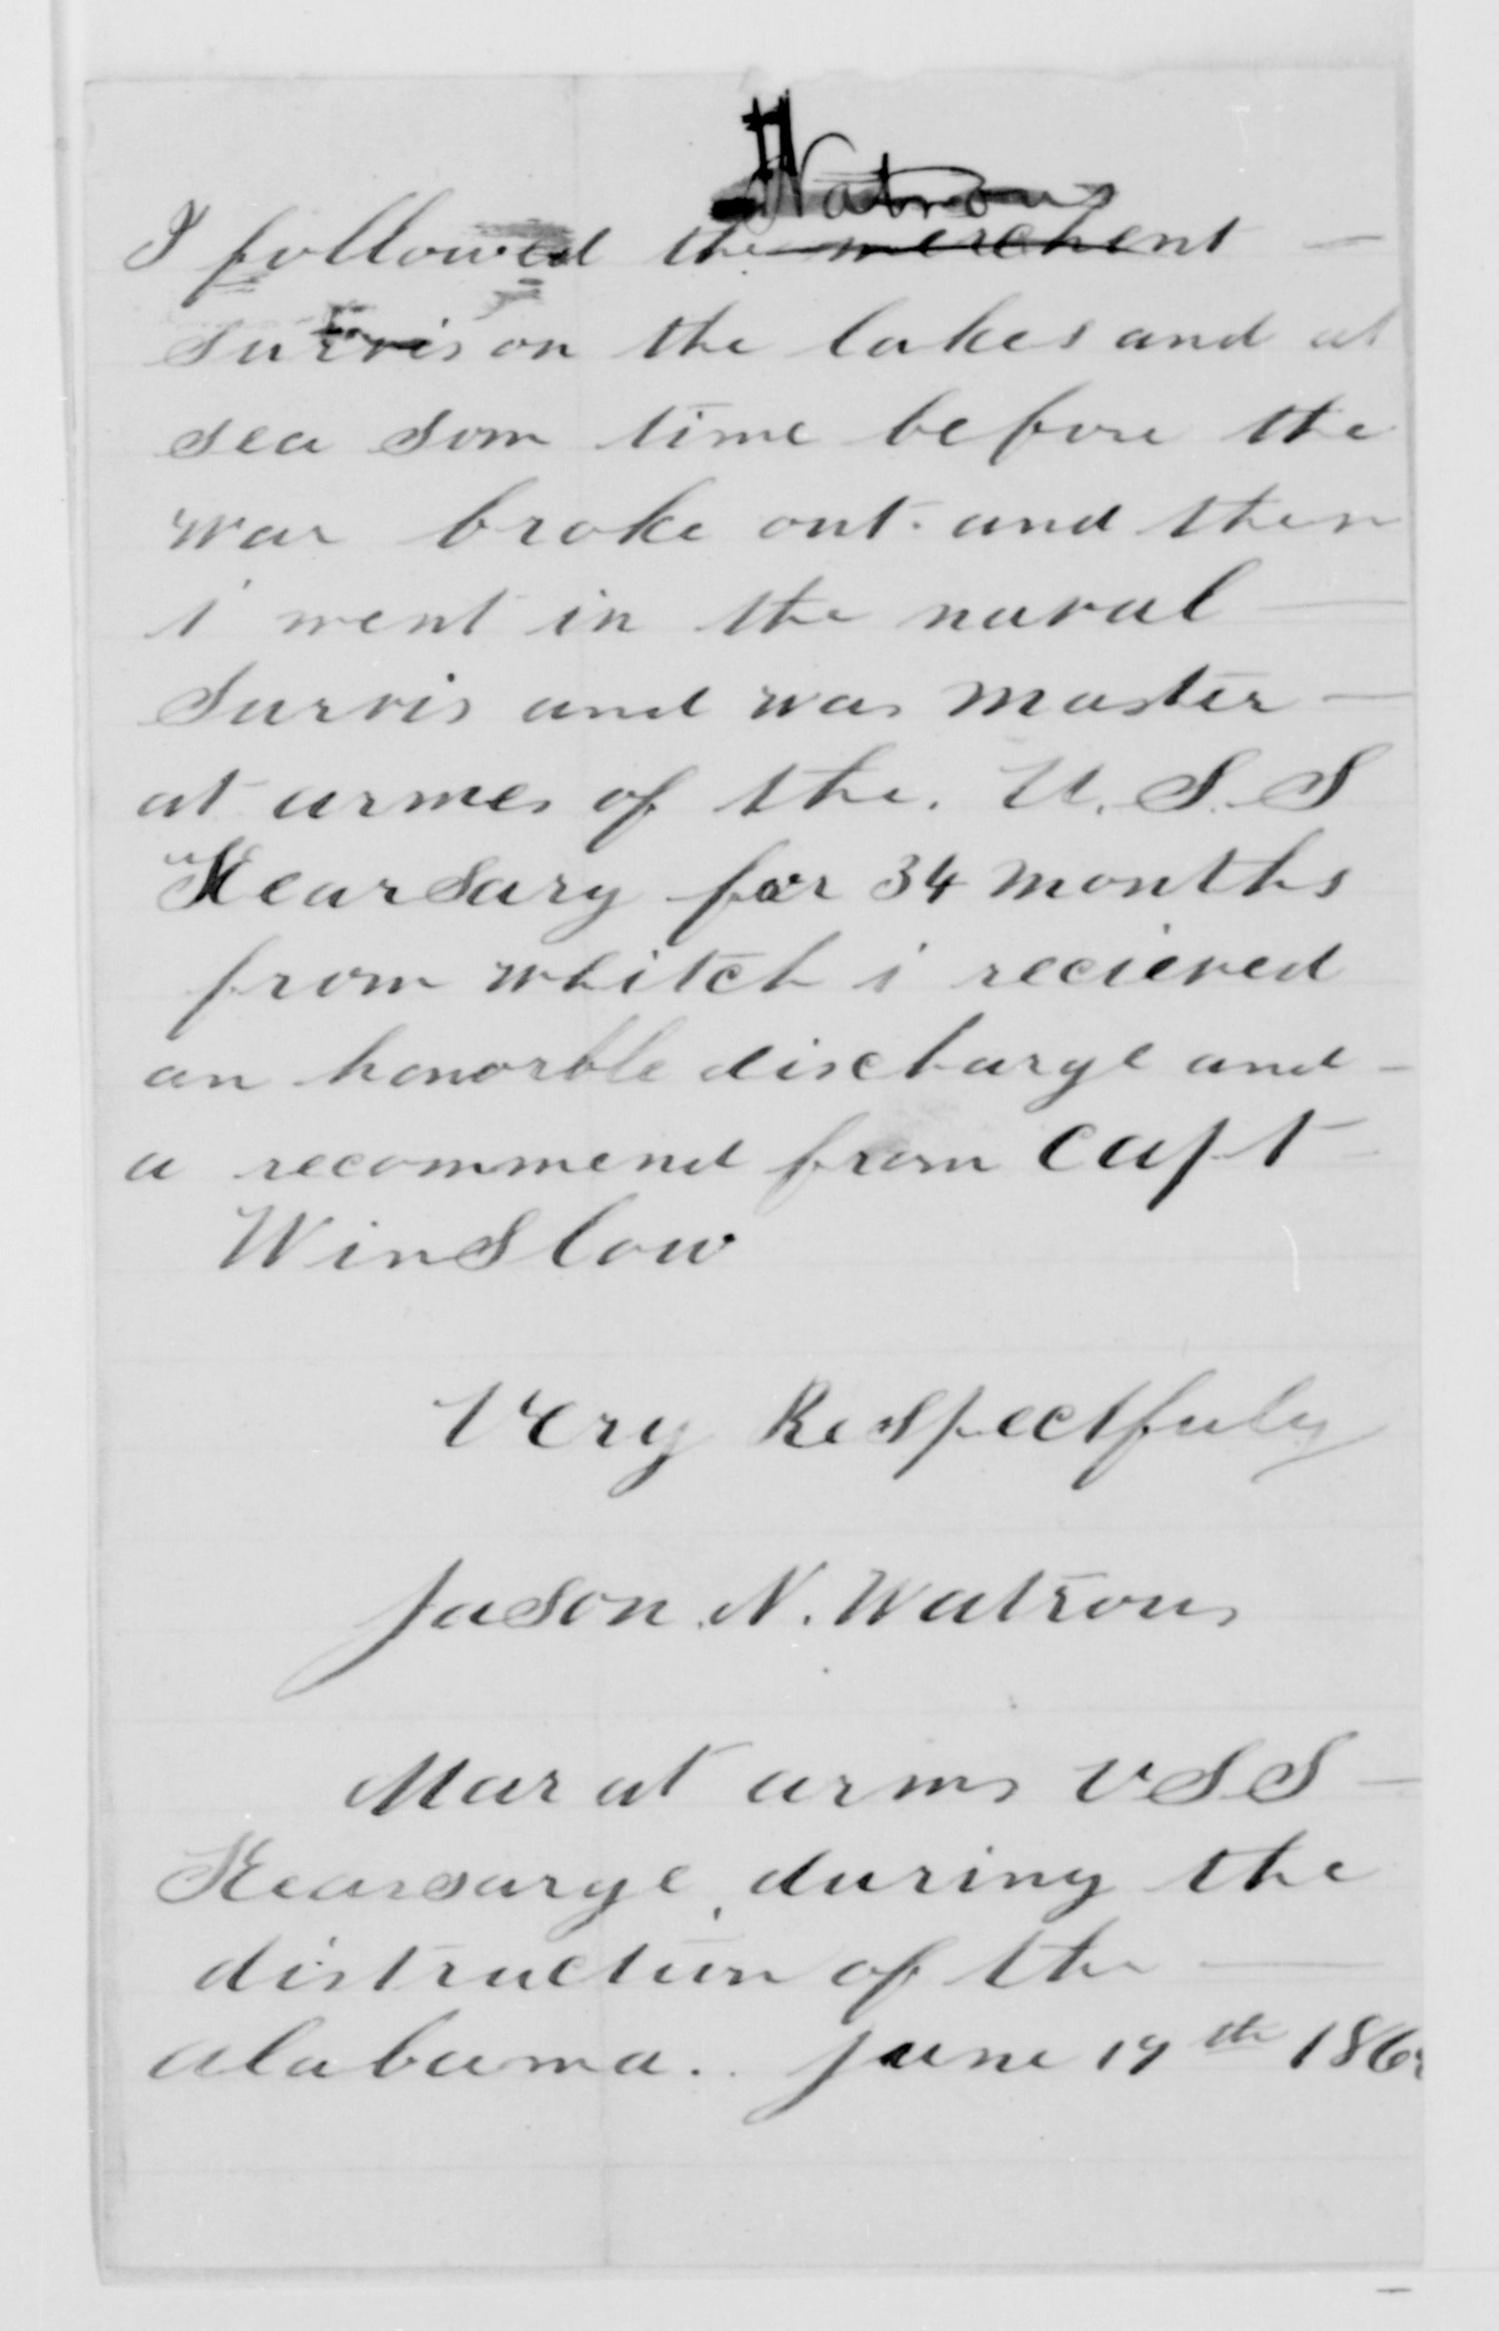 Watrous
I followed the merchent —
survis on the lakes and at
sea som time before the
war broke out and then
i went in the naval —
survis and was master —
at armes of the. U. S. S
Kearsary for 34 months
from whitch i recieved
an honorble discharge and -
a recommend from Capt
Winslow
Very Respectfuly
Jason. N. Watrous
Mar at arms USS -
Kearsarge, during the
distruction of the —
alabama.. June 19th 186